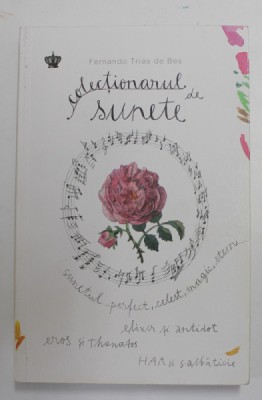 Fernando Trias de Bes
colecționarul de
sunete
sunetul perfect, celest, magic, etern
elixir și antidot
eros și thanatos
HAR și sălbăticie